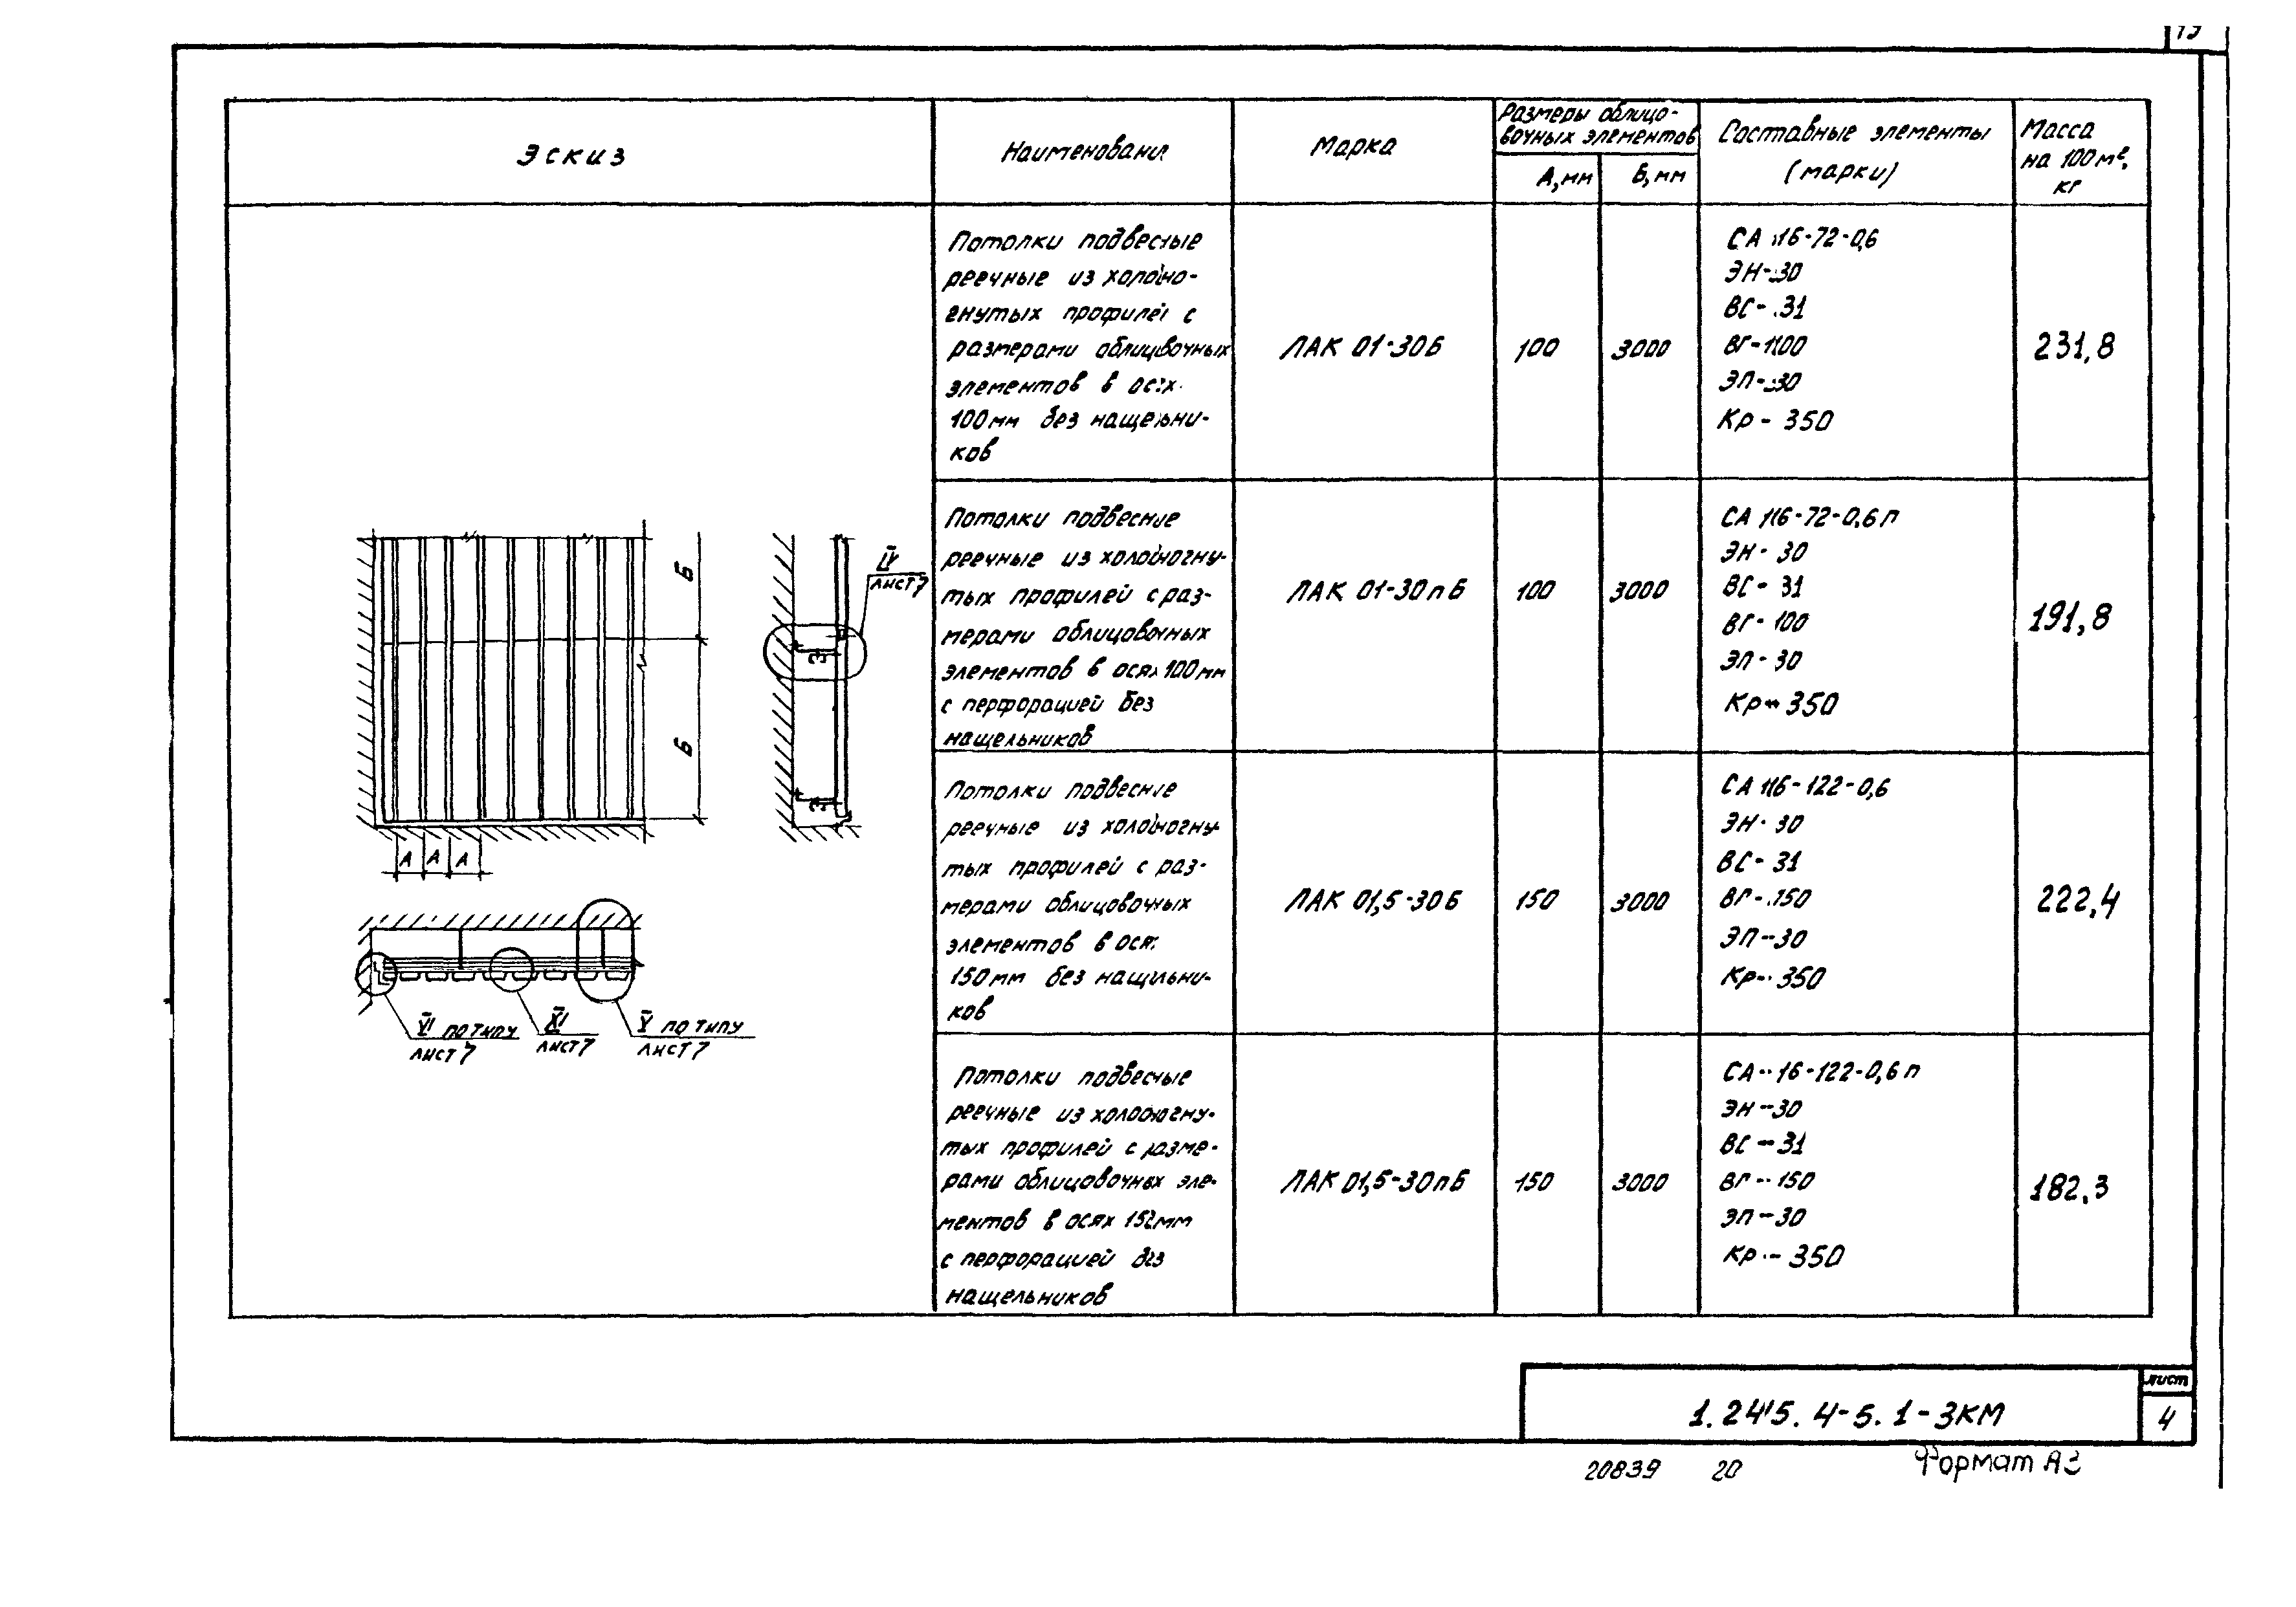 19
Эскиз
Наименование
Марка
Размеры облицо-
вочных элементов
А, мм
Б, мм
Составные элементы
(марки)
Масса
на 100 м²,
кг
Потолки подвесные
реечные из холодно-
гнутых профилей с
размерами облицовочных
элементов в осях
100 мм без нащельни-
ков
ЛАК 01-30Б
100
3000
СА 116-72-0,6
ЭН-30
ВС-31
ВГ-100
ЭП-30
Кр-350
231,8
Потолки подвесные
реечные из холодногну-
тых профилей с раз-
мерами облицовочных
элементов в осях 100 мм
с перфорацией без
нащельников
ЛАК 01-30пБ
100
3000
СА 116-72-0,6п
ЭН-30
ВС-31
ВГ-100
ЭП-30
Кр-350
191,8
Потолки подвесные
реечные из холодногну-
тых профилей с раз-
мерами облицовочных
элементов в осях
150 мм без нащельни-
ков
ЛАК 01,5-30Б
150
3000
СА 116-122-0,6
ЭН-30
ВС-31
ВГ-150
ЭП-30
Кр-350
222,4
Потолки подвесные
реечные из холодногну-
тых профилей с разме-
рами облицовочных эле-
ментов в осях 150 мм
с перфорацией без
нащельников
ЛАК 01,5-30пБ
150
3000
СА-16-122-0,6п
ЭН-30
ВС-31
ВГ-150
ЭП-30
Кр-350
182,3
Б
Б
IV
лист 7
А А А
VI по типу
лист 7
XI
лист 7
V по типу
лист 7
1.245.4-5.1-3КМ
лист
4
20839 20
Формат А3